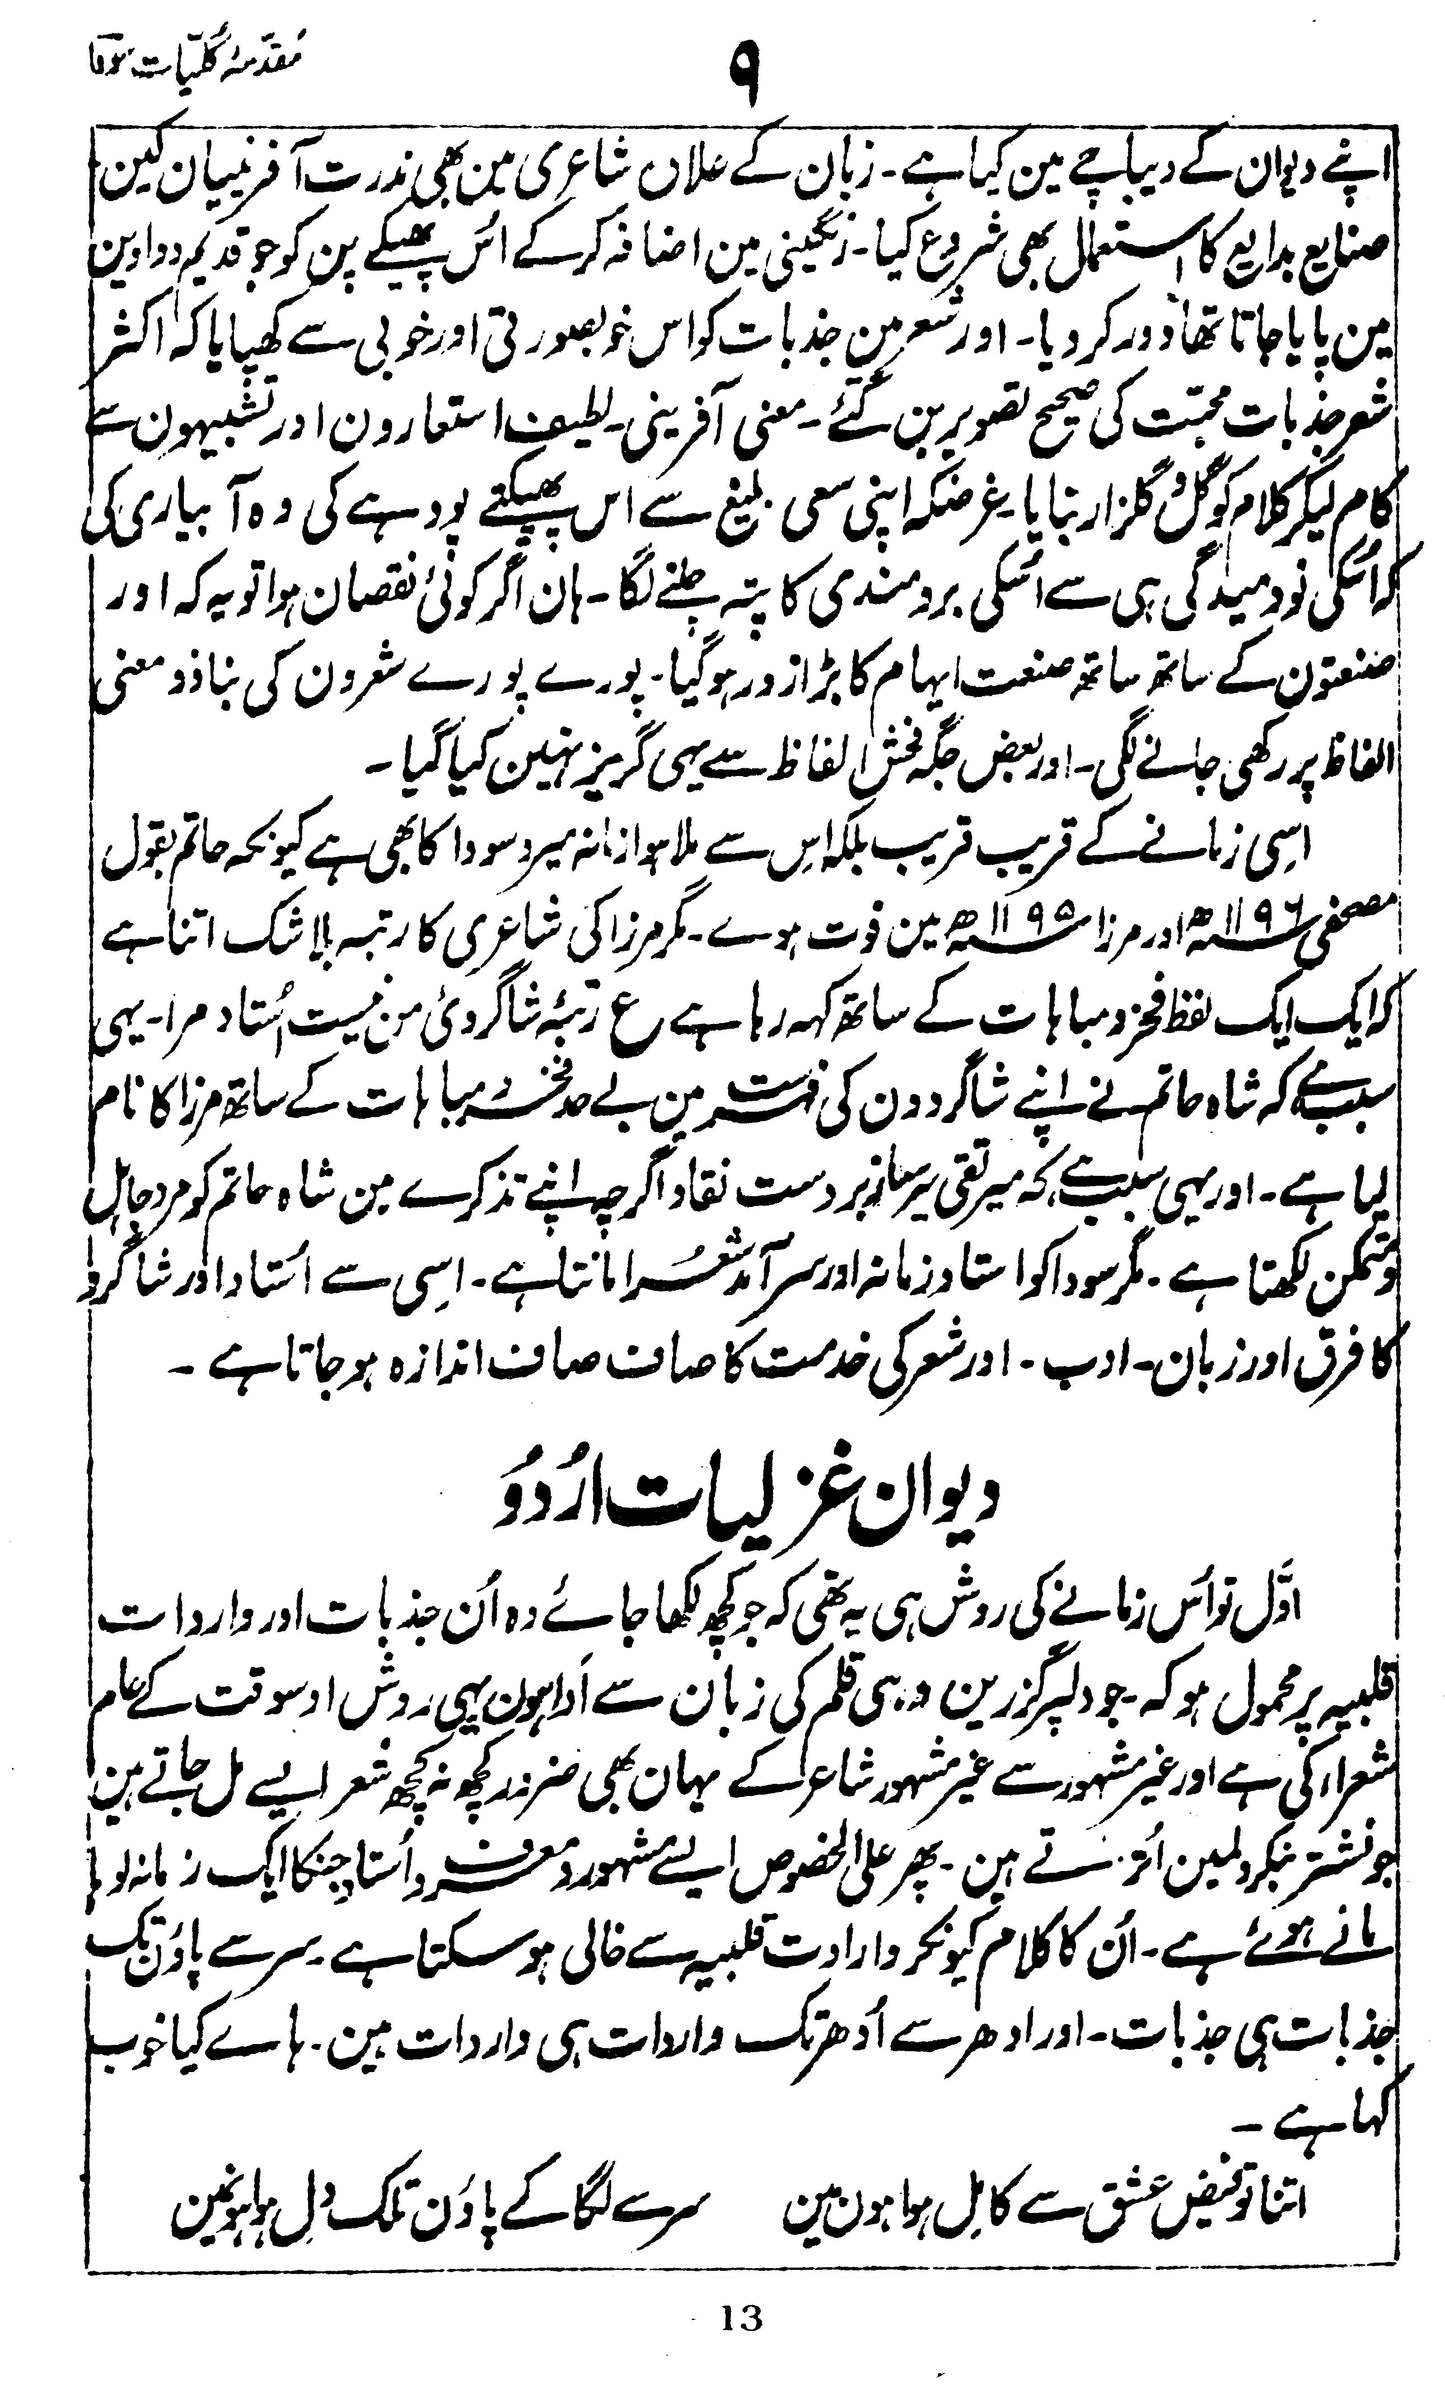 مُقدّمۂ کُلّیات سودا
۹
اپنے دیوان کے دیباچے مین کیا ہے۔ زبان کے علاوہ شاعری مین بھی ندرت آفرینیان کین
صنایع بدایع کا استعمال بھی شروع کیا۔ رنگینی مین اضافہ کرکے اُس پھیکے پن کو جو قدیم دواوین
مین پایا جاتا تھا دور کر دیا۔ اور شعر مین جذبات کو اس خوبصورتی اور خوبی سے کھپایا کہ اکثر
شعر جذبات محبّت کی صحیح تصویر بن گئے۔ معنی آفرینی۔ لطیف استعارون اور تشبیہون سے
کام لیکر کلام کو گُل و گلزار بنایا۔ غرضکہ اپنی سعی بلیغ سے اس پھبکتے پودے کی وہ آبیاری کی
کہ اُسکی نودمیدگی ہی سے اُسکی برومندی کا پتہ چلنے لگا۔ ہان اگر کوئی نقصان ہوا تو یہ کہ اور
صنعتون کے ساتھ ساتھ صنعت ایہام کا بڑا زور ہو گیا۔ پورے پورے شعرون کی بنا ذومعنی
الفاظ پر رکھی جانے لگی۔ اور بعض جگہ فحش الفاظ سے بھی گریز نہین کیا گیا۔
اسِی زمانے کے قریب قریب بلکہ اسِ سے ملا ہوا زمانہ میر و سودا کا بھی ہے کیونکہ حاتم بقول
مصحفی ۱۱۹۶ھ اور مرزا ۱۱۹۵ھ مین فوت ہوے۔ مگر مرزا کی شاعری کا رتبہ بلاشک اتنا ہے
کہ ایک ایک لفظ فخر و مباہات کے ساتھ کہہ رہا ہے ع رتبۂ شاگردئ من نیست اُستاد مرا۔ یہی
سبب ہے کہ شاہ حاتم نے اپنے شاگردون کی فہرست مین بے حد فخر و مباہات کے ساتھ مرزا کا نام
لیا ہے۔ اور یہی سبب ہے کہ میر تقی میر سا زبردست نقاد اگرچہ اپنے تذکرے مین شاہ حاتم کو مرد جاہل
و متمکن لکھتا ہے۔ مگر سودا کو استاد زمانہ اور سر آمد شعرا مانتا ہے۔ اسِی سے اُستاد اور شاگرد
کا فرق اور زبان۔ ادب۔ اور شعر کی خدمت کا صاف صاف اندازہ ہو جاتا ہے۔
دیوان غزلیات اُردُو
اوّل تو اُس زمانے کی روش ہی یہ تھی کہ جو کچھ لکھا جائے وہ اُن جذبات اور واردات
قلبیہ پر محمول ہو کہ۔ جو دلپر گزرین وہی قلم کی زبان سے اَدا ہون یہی روش اوسوقت کے عام
شعراء کی ہے اور غیر مشہور سے غیر مشہور شاعر کے یہان بھی ضرور کچھ نہ کچھ شعر ایسے مل جاتے ہین
جو نشتر بنکر دلمین اُترتے ہین۔ پھر علی الخصوص ایسے مشہور و معروف و اُستاد جنکا ایک زمانہ لوہا
مانے ہوئے ہے۔ اُن کا کلام کیونکر وارادت قلبیہ سے خالی ہو سکتا ہے۔ سر سے پاؤن تک
جذبات ہی جذبات۔ اور ادِھر سے اُدھر تک واردات ہی واردات ہین۔ ہاے کیا خوب
کہا ہے۔
اتنا تو فیض عشق سے کامِل ہوا ہون مین سر سے لگا کے پاؤن تلک دِل ہوا ہونمین
13